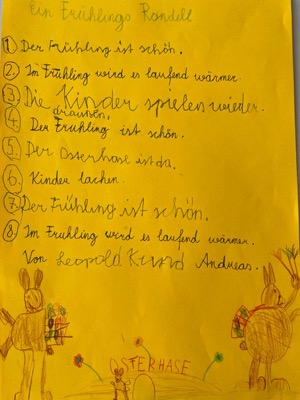 Ein Frühlings Rondell
① Der Frühling ist schön.
② Im Frühling wird es laufend wärmer.
③ Die Kinder spielen wieder
draußen.
④ Der Frühling ist schön.
⑤ Der Osterhase ist da.
⑥ Kinder lachen.
⑦ Der Frühling ist schön.
⑧ Im Frühling wird es laufend wärmer.
Von Leopold Kund Andreas.
OSTERHASE